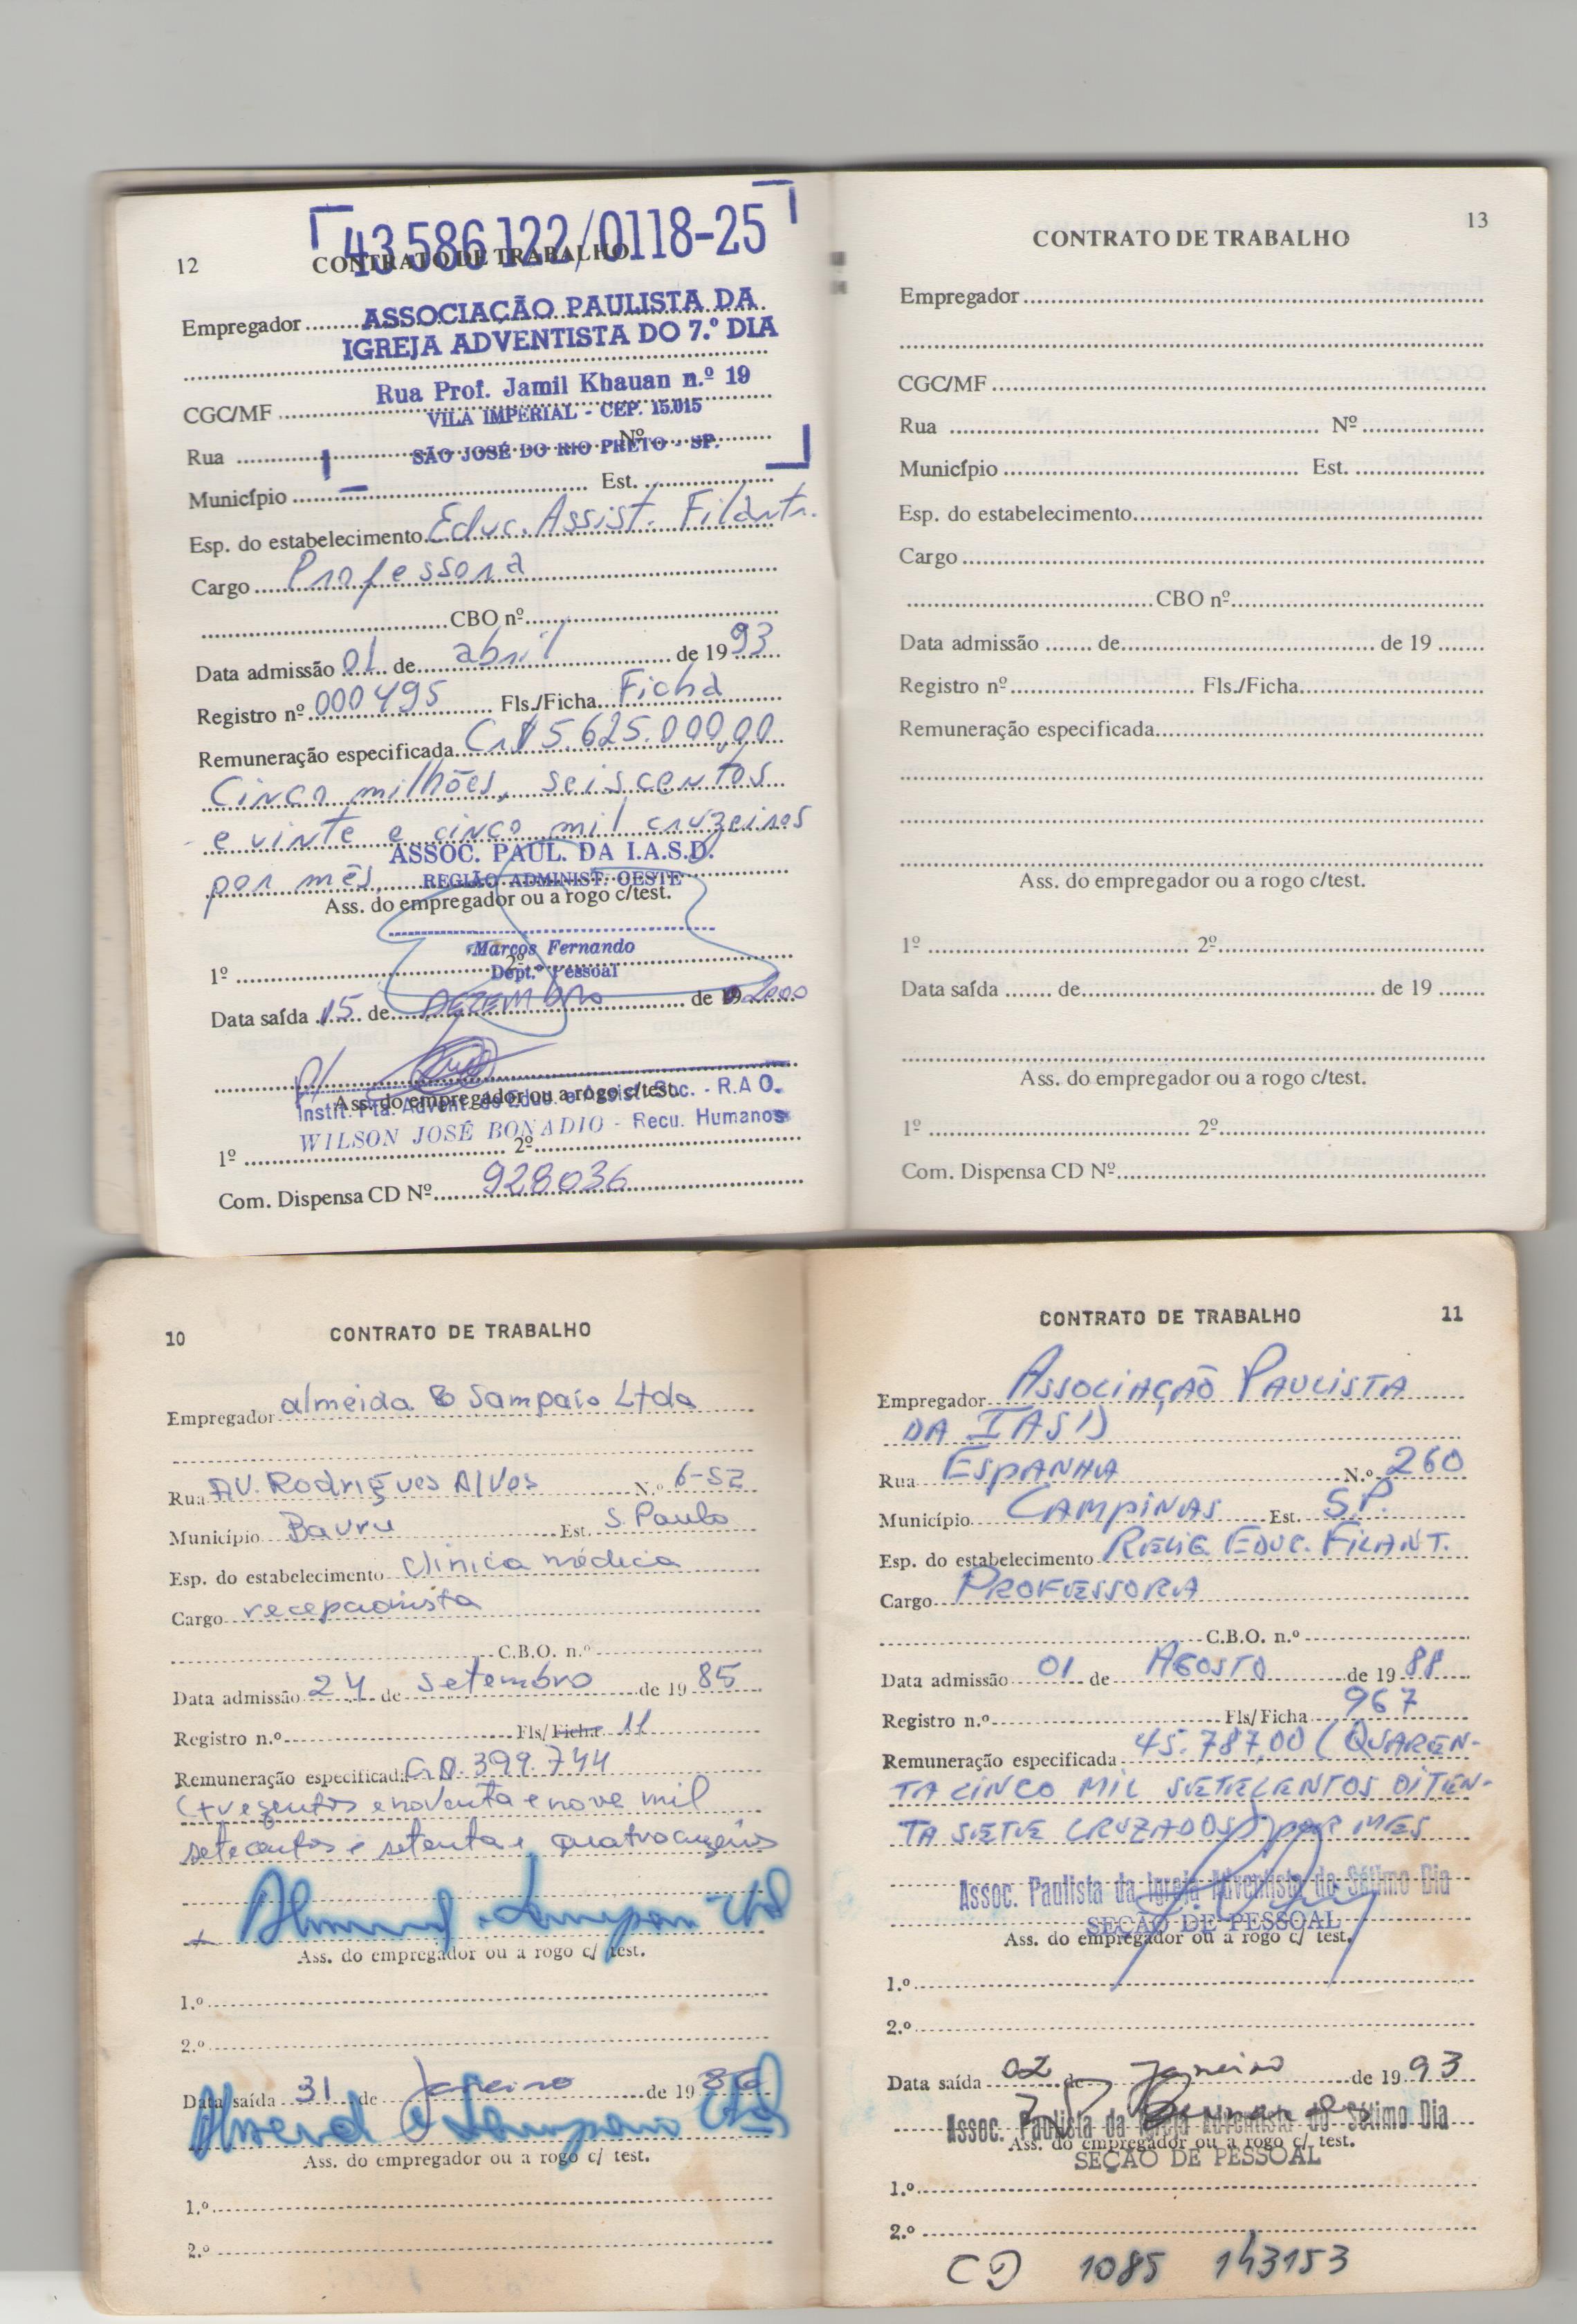 43.586.122/0118-25
12
CONTRATO DE TRABALHO
Empregador ASSOCIAÇÃO PAULISTA DA
IGREJA ADVENTISTA DO 7.º DIA
Rua Prof. Jamil Khauan n.º 19
CGC/MF
VILA IMPERIAL - CEP. 15.015
Rua Nº
SÃO JOSÉ DO RIO PRETO - SP.
Município Est.
Esp. do estabelecimento Educ. Assist. Filantr.
Cargo Professora
CBO nº
Data admissão 01 de abril de 1993
Registro nº 000495 Fls./Ficha Ficha
Remuneração especificada Cr$ 5.625.000,00
Cinco milhões, seiscentos
e vinte e cinco mil cruzeiros
por mês.
ASSOC. PAUL. DA I.A.S.D.
REGIÃO ADMINIST. OESTE
Ass. do empregador ou a rogo c/test.
Marcos Fernando
1º 2º
Dept.º Pessoal
Data saída 15 de DEZEMBRO de 19 2000
p/
Ass. do empregador ou a rogo c/test.
Instit. Pta. Advent. de Educ. e Assist. Soc. - R.A O.
WILSON JOSÉ BONADIO - Recu. Humanos
1º 2º
Com. Dispensa CD Nº 928036
13
CONTRATO DE TRABALHO
Empregador
CGC/MF
Rua Nº
Município Est.
Esp. do estabelecimento
Cargo
CBO nº
Data admissão de de 19
Registro nº Fls./Ficha
Remuneração especificada
Ass. do empregador ou a rogo c/test.
1º 2º
Data saída de de 19
Ass. do empregador ou a rogo c/test.
1º 2º
Com. Dispensa CD Nº
10
CONTRATO DE TRABALHO
Empregador almeida & Sampaio Ltda
Rua AV. Rodrigues Alves N.º 6-52
Município Bauru Est. S. Paulo
Esp. do estabelecimento Clinica médica
Cargo recepcionista
C.B.O. n.º
Data admissão 24 de setembro de 1985
Registro n.º Fls/Ficha 11
Remuneração especificada Cr$. 399.744
(trezentos e noventa e nove mil
setecentos e setenta e quatro cruzeiros
Almeida & Sampaio Ltda
Ass. do empregador ou a rogo c/ test.
1.º
2.º
Data saída 31 de Janeiro de 1986
Almeida & Sampaio Ltda
Ass. do empregador ou a rogo c/ test.
1.º
2.º
11
CONTRATO DE TRABALHO
Empregador ASSOCIAÇÃO PAULISTA
DA IASD
Rua ESPANHA N.º 260
Município CAMPINAS Est. S.P.
Esp. do estabelecimento RELIG. EDUC. FILANT.
Cargo PROFESSORA
C.B.O. n.º
Data admissão 01 de AGOSTO de 1988
Registro n.º Fls/Ficha 967
Remuneração especificada 45.787,00 (QUAREN-
TA CINCO MIL SETECENTOS OITEN-
TA SETE CRUZADOS) por MES
Assoc. Paulista da Igreja Adventista do Sétimo Dia
SEÇÃO DE PESSOAL
Ass. do empregador ou a rogo c/ test.
1.º
2.º
Data saída 02 de Janeiro de 1993
Assoc. Paulista da Igreja Adventista do Sétimo Dia
Ass. do empregador ou a rogo c/ test.
SEÇÃO DE PESSOAL
1.º
2.º
CD 1085 143153